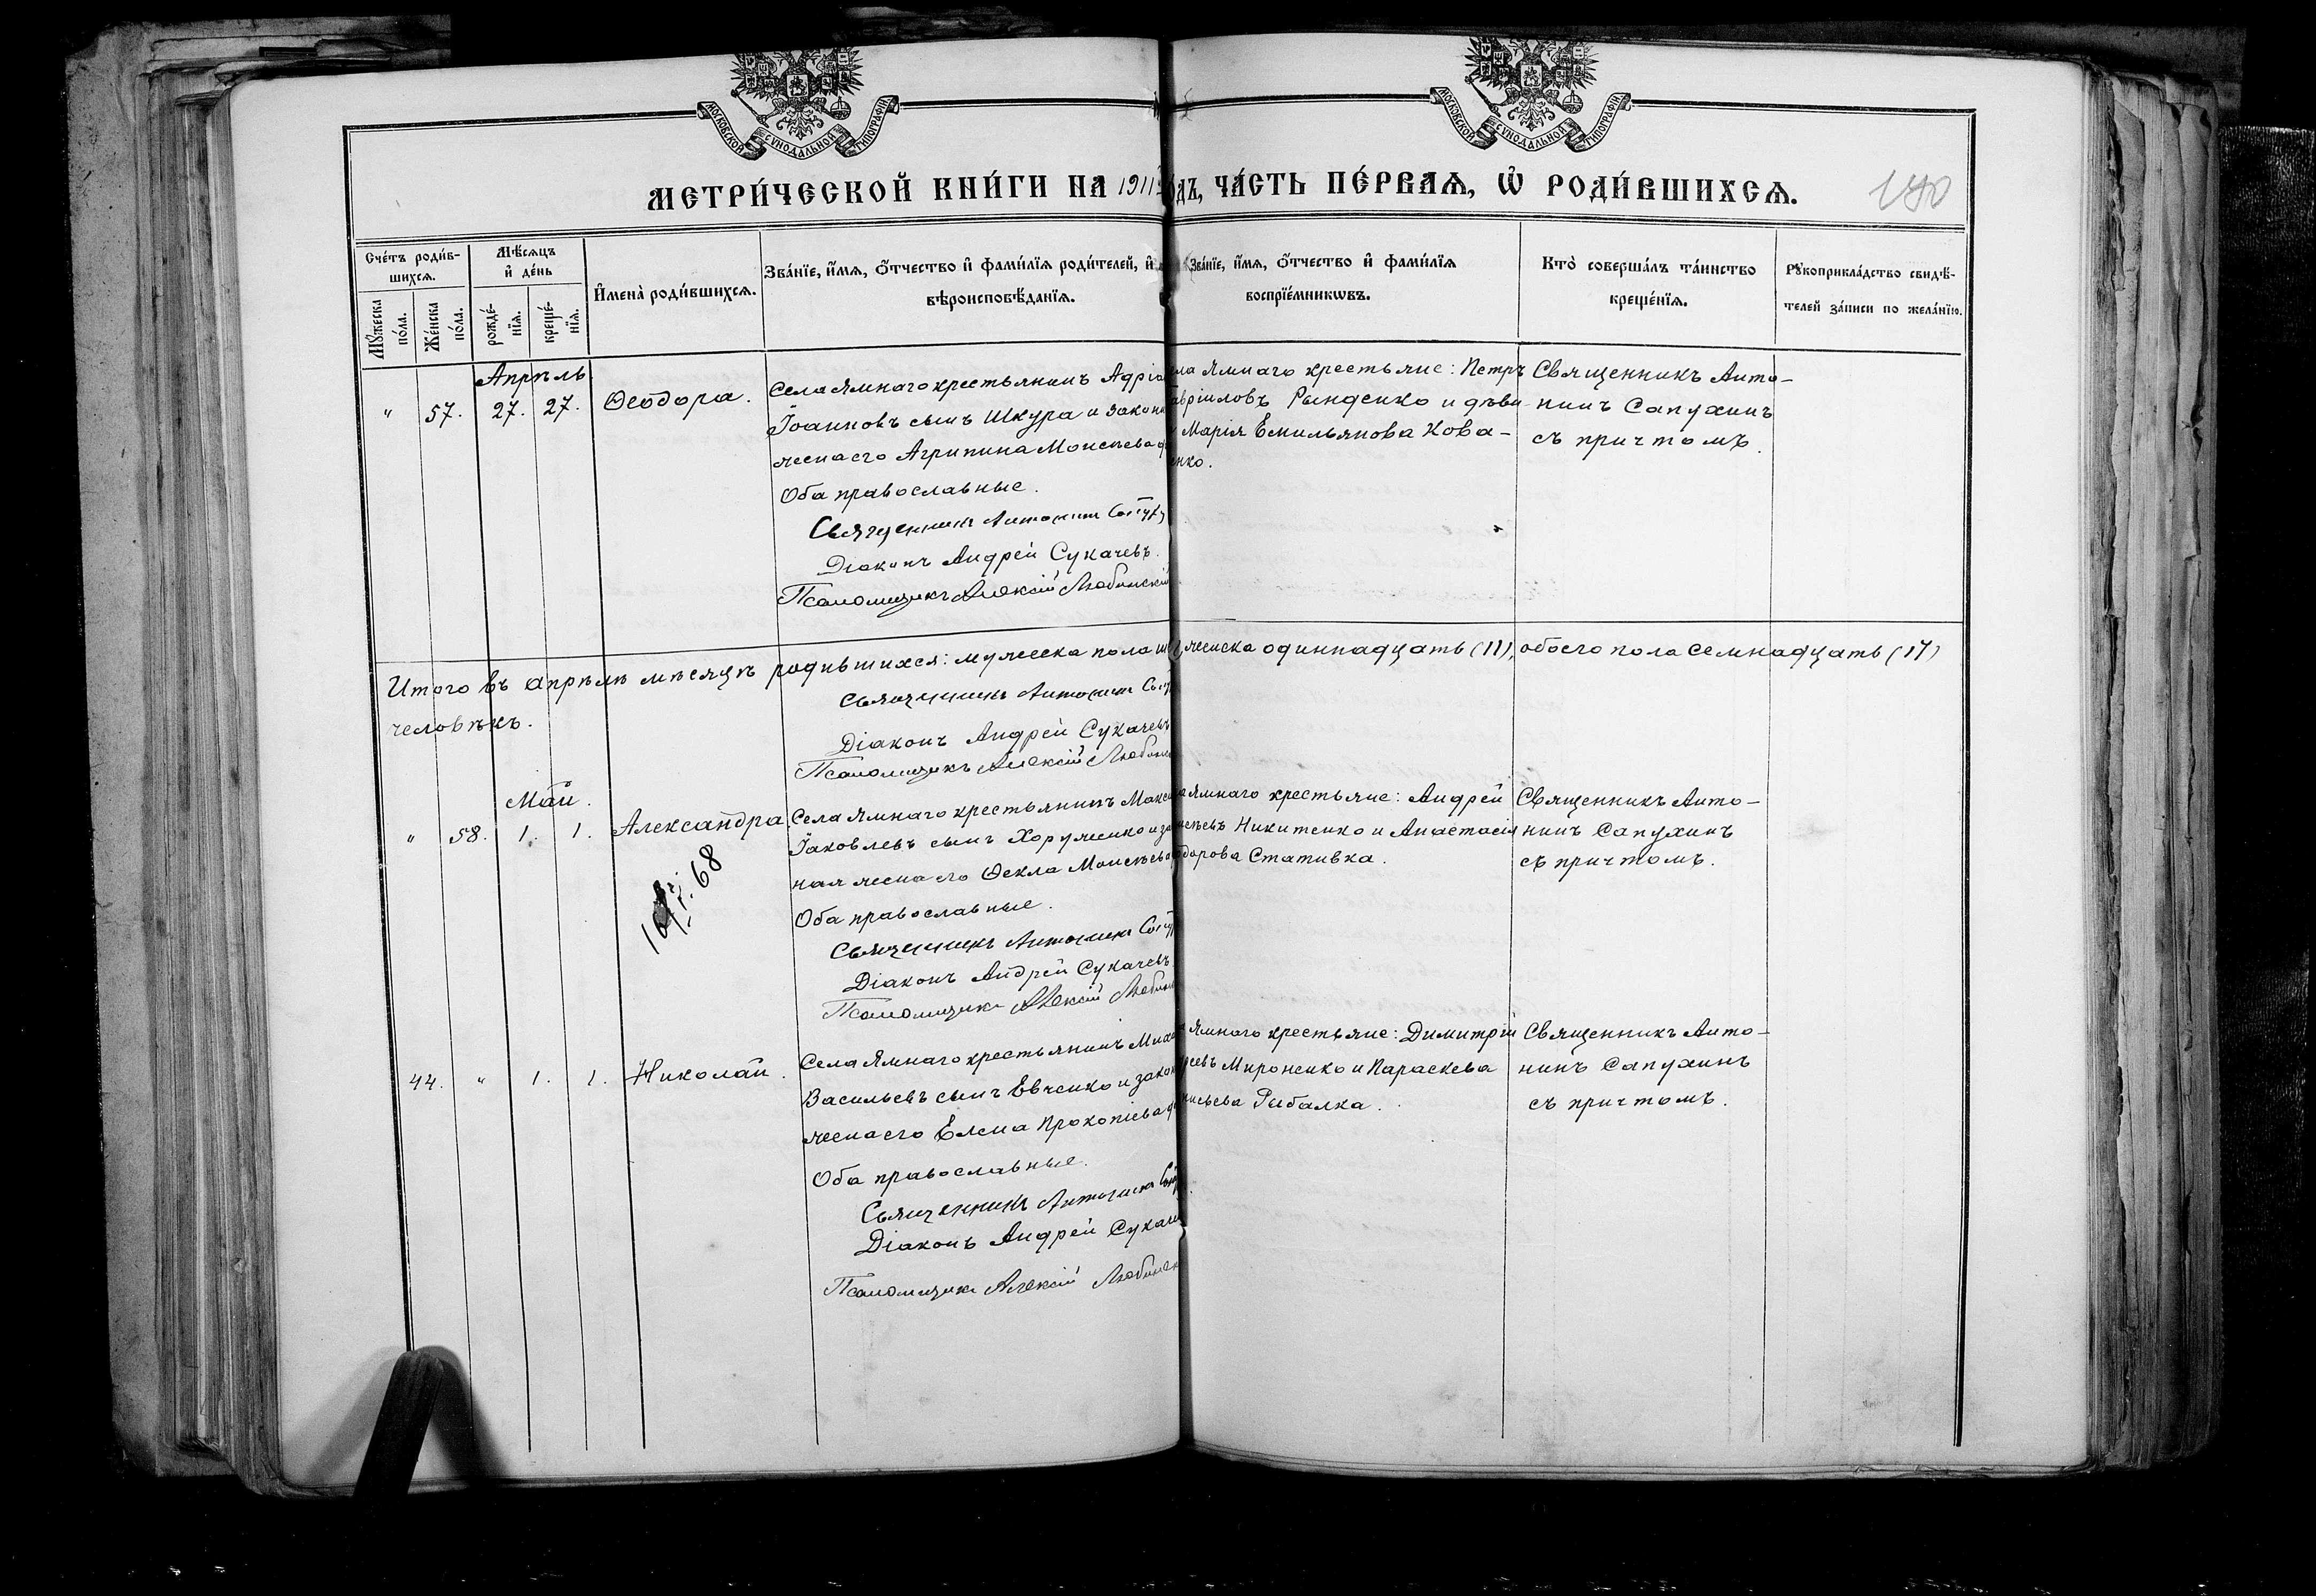 МОСКОВСКОЙ СѴНОДАЛЬНОЙ ТИПОГРАФІИ
МОСКОВСКОЙ СѴНОДАЛЬНОЙ ТИПОГРАФІИ
МЕТРИ́ЧЕСКОЙ КНИ́ГИ НА 1911 ГОДЪ, ЧА́СТЬ ПЕ́РВАѦ, Ѡ РОДИ́ВШИХСѦ.
180
Сче́тъ роди́в-
шихсѧ.
Мꙋ́жеска по́ла.
Же́нска по́ла.
Мѣ́сѧцъ
и҆ де́нь
рожде́-
нїѧ.
креще́-
нїѧ.
И҆мена̀ роди́вшихсѧ.
Зва́нїе, и҆́мѧ, ѻ҆́тчество и҆ фами́лїѧ роди́телей, и҆
вѣроисповѣ́данїѧ.
Зва́нїе, и҆́мѧ, ѻ҆́тчество и҆ фами́лїѧ
воспрїе́мникѡвъ.
Кто̀ соверша́лъ та́инство
креще́нїѧ.
Рꙋкоприкла́дство свидѣ́-
телей за́писи по жела́нїю.
Апрѣль
" 57. 27. 27. Ѳеодора.
Села Ямнаго крестьянинъ Адріа
Іоанновъ сынъ Шкура и закон
жена его Агрипина Моисѣева
Оба православные.
Священникъ Антонинъ Сапух
Діаконъ Андрей Сукачевъ.
Псаломщикъ Алексій Любинскій
Ямнаго крестьяне: Петръ
Гавріиловъ Рынденко и дѣви-
Марія Емильянова Кова-
енко.
Священникъ Анто-
нинъ Сапухинъ
съ причтомъ.
Итого въ апрѣлѣ мѣсяцѣ родившихся: мужеска пола женска одиннадцать (11), обоего пола семнадцать (17)
человѣкъ.
Священникъ Антонинъ Сапу
Діаконъ Андрей Сукачевъ
Псаломщикъ Алексій Любинс
Май.
" 58. 1. 1. Александра.
68
Села Ямнаго крестьянинъ Макси
Іаковлевъ сынъ Хоруженко и за
ная жена его Ѳекла Моисѣева
Оба православные.
Священникъ Антонинъ Сапу
Діаконъ Андрей Сукачевъ
Псаломщикъ Алексій Любинс
Ямнаго крестьяне: Андрей
Никитенко и Анастасія
дорова Стативка.
Священникъ Анто-
нинъ Сапухинъ
съ причтомъ.
44. " 1. 1. Николай.
Села Ямнаго крестьянинъ Миха
Васильевъ сынъ Евченко и закон
жена его Елена Прокопіева
Оба православные.
Священникъ Антонинъ Сапу
Діаконъ Андрей Сукаче
Псаломщикъ Алексій Любинск
Ямнаго крестьяне: Димитрій
Мироненко и Параскева
Рыбалка.
Священникъ Анто-
нинъ Сапухинъ
съ причтомъ.